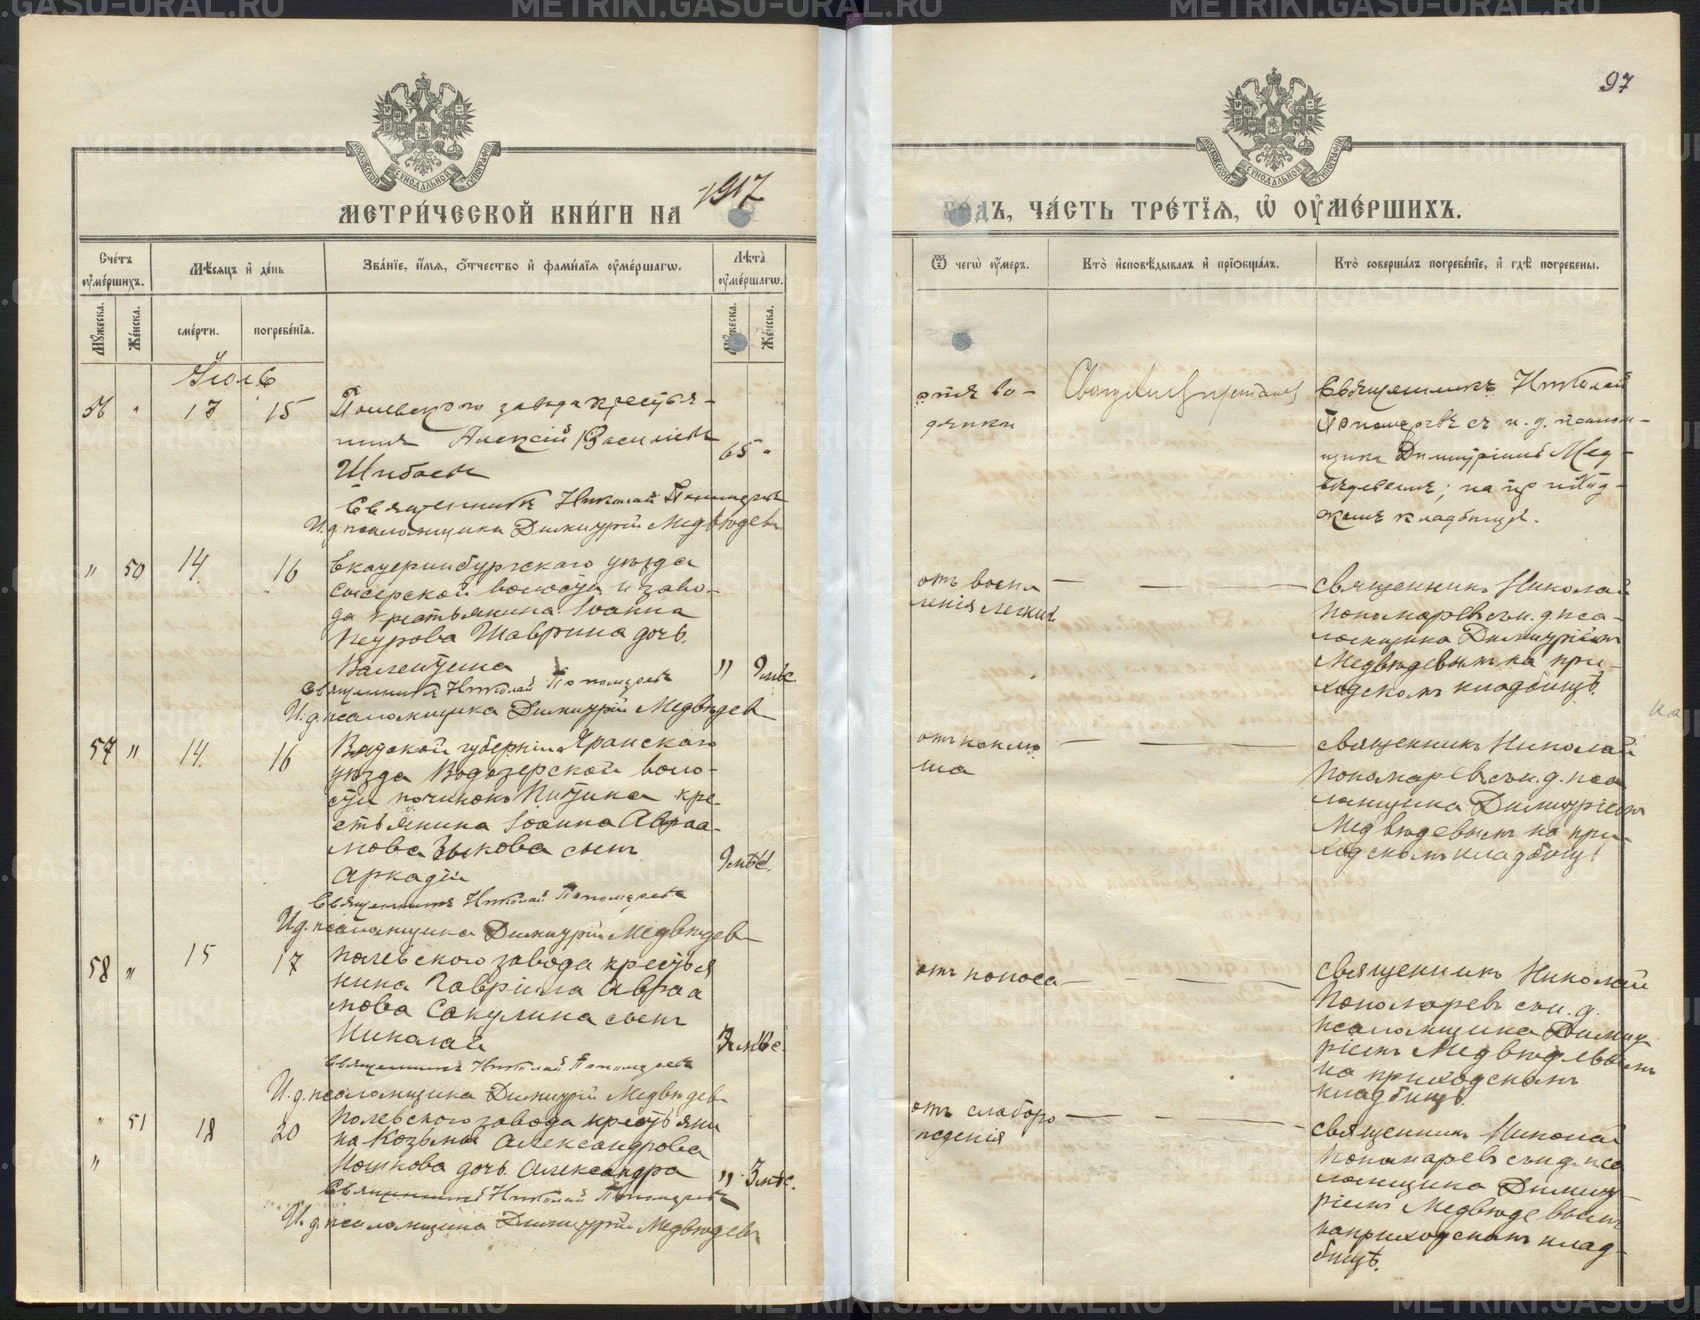 97
МЕТРИ́ЧЕСКОЙ КНИ́ГИ НА 1917
ГО́ДЪ, ЧА́СТЬ ТРЕ́ТЇѦ, Ѡ҆ ОУ҆МЕ́РШИХЪ.
МОСКОВСКОЙ СѴНОДАЛЬНОЙ ТИПОГРАФІИ
МОСКОВСКОЙ СѴНОДАЛЬНОЙ ТИПОГРАФІИ
Сче́тъ оу҆ме́ршихъ.
Мѣ́сяцъ и҆ де́нь
Зва́нїе, и҆́мѧ, ѻ҆́тчество и҆ фами́лїѧ оу҆ме́ршагѡ.
Лѣта̀ оу҆ме́ршагѡ.
Ѿ чегѡ̀ оу҆́меръ.
Кто̀ и҆сповѣ́дывалъ и҆ прїѻбща́лъ.
Кто̀ соверша́лъ погребе́нїе, и҆ гдѣ̀ погребены̀.
Мꙋ́жеска.
Же́нска.
сме́рти.
погребе́нїѧ.
Мꙋ́жеска.
Же́нска.
Іюль
56 " 13 15
Полевского завода крестья-
нинъ Алексій Васильевъ
Шибаевъ
65 "
Священникъ Николай Пономаревъ
И.д. псаломщика Димитрій Медвѣдевъ
водянки
Священникъ Николай
Пономаревъ съ и. д. псалом-
щика Димитріемъ Мед-
вѣдевымъ; на приход-
скомъ кладбищѣ.
" 50 14 16
Екатеринбургскаго уѣзда
Сысерской волости и заво-
да крестьянина Іоанна
Петрова Шаврина дочь
Валентина
" 9 мѣс.
Священникъ Николай Пономаревъ
И.д. псаломщика Димитрій Медвѣдев
отъ воспа
ленія легкихъ
священникъ Николай
Пономаревъ съ и. д. пса-
ломщика Димитріемъ
Медвѣдевымъ на при-
ходскомъ кладбищѣ.
57 " 14 16
Вятской губерніи Яранскаго
уѣзда Водозерской воло-
сти починокъ Питика кре-
стьянина Іоанна Авраа-
мова Зыкова сынъ
Аркадій
9 мѣс.
Священникъ Николай Пономаревъ
И.д. псаломщика Димитрій Медвѣдев
отъ коклю
ша
священникъ Николай
Пономаревъ съ и. д. пса
ломщика Димитріемъ
Медвѣдевымъ на при-
ходскомъ кладбищѣ
58 " 15 17
Полевского завода крестья
нина Гавріила Авраа
мова Сакулина сынъ
Николай
3 мѣс.
Священникъ Николай Пономаревъ
И.д. псаломщика Димитрій Медвѣдев
отъ поноса
священникъ Николай
Пономаревъ съ и. д.
псаломщика Димит
ріемъ Медвѣдевымъ
на приходскомъ
кладбищѣ.
" 51 18 20
Полевского завода крестьяни
на Козьмы Александрова
Кошкова дочь Александра
" 3 мѣс.
Священникъ Николай Пономаревъ
И.д. псаломщика Димитрій Медвѣдевъ
отъ слаборо
жденія
священникъ Николай
Пономаревъ съ и.д. пса
ломщика Димит
ріемъ Медвѣдевымъ
на приходскомъ клад-
бищѣ.
METRIKI.GASU-URAL.RU